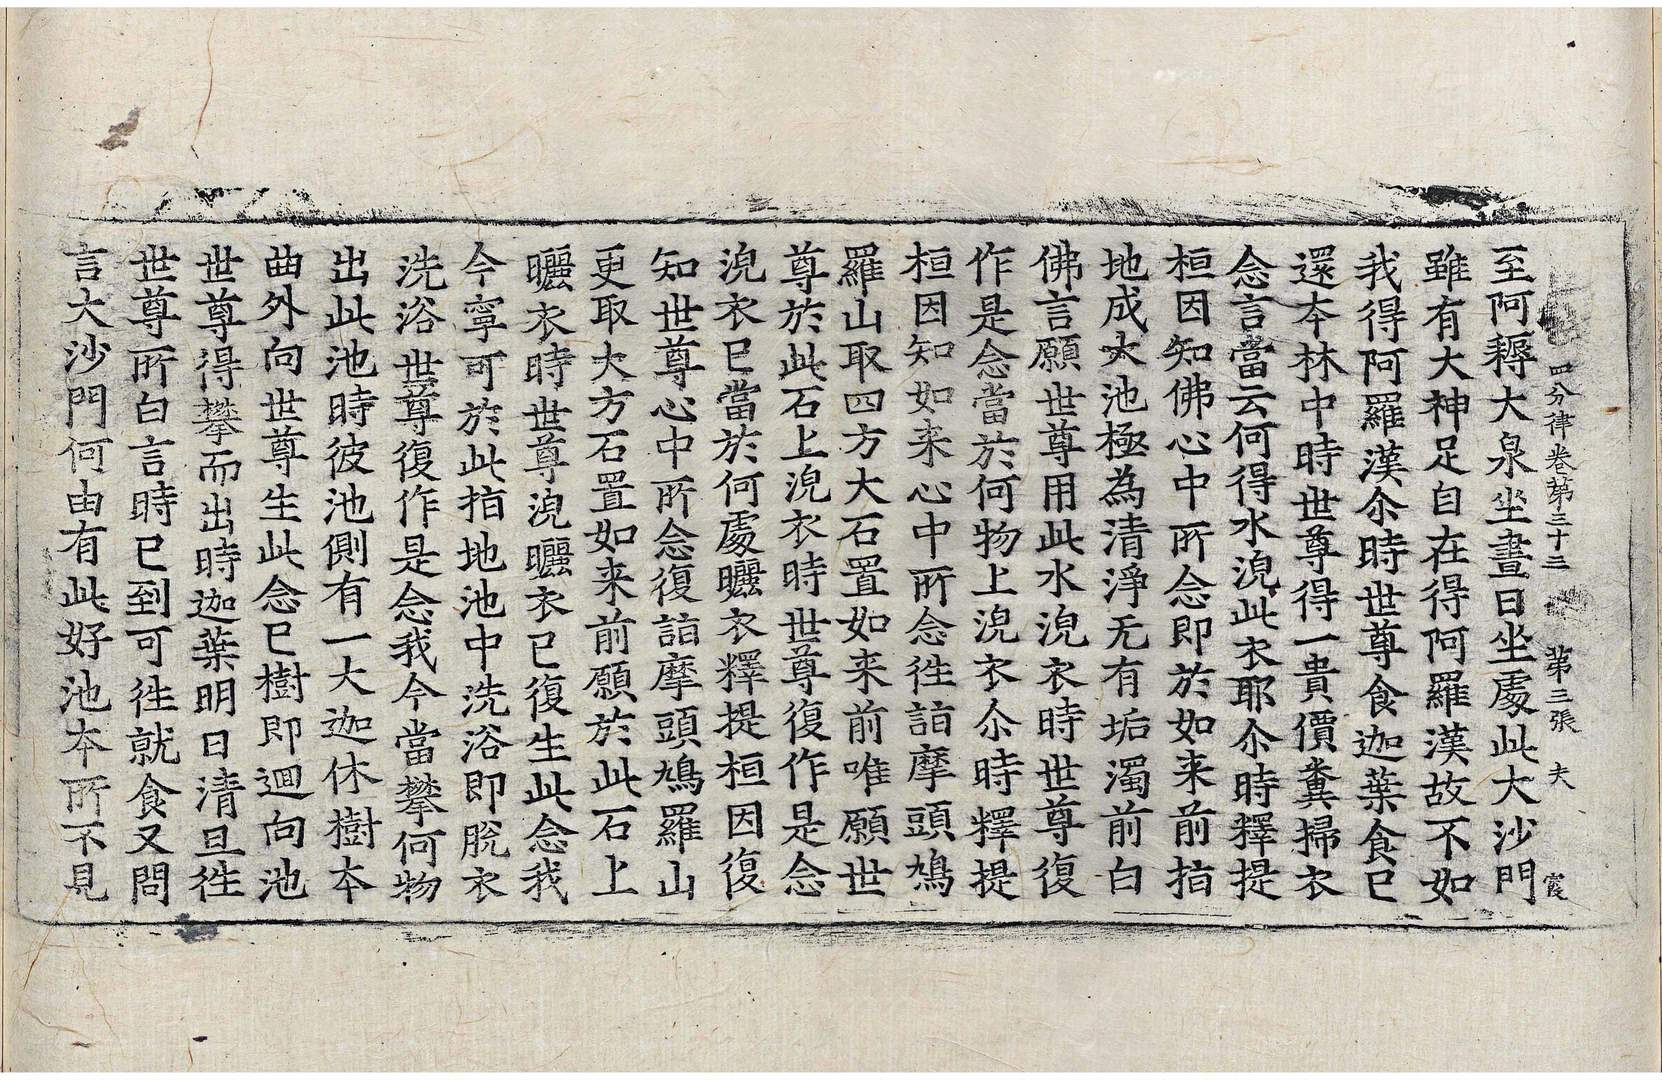 四分律卷第三十三 第三張 夫 霞
至阿耨大泉坐晝日坐處此大沙門
雖有大神足自在得阿羅漢故不如
我得阿羅漢尒時世尊食迦葉食已
還本林中時世尊得一貴價糞掃衣
念言當云何得水浣此衣耶尒時釋提
桓因知佛心中所念即於如来前指
地成大池極為清淨无有垢濁前白
佛言願世尊用此水浣衣時世尊復
作是念當於何物上浣衣尒時釋提
桓因知如来心中所念徃詣摩頭鳩
羅山取四方大石置如来前唯願世
尊於此石上浣衣時世尊復作是念
浣衣已當於何處曬衣釋提桓因復
知世尊心中所念復詣摩頭鳩羅山
更取大方石置如来前願於此石上
曬衣時世尊浣曬衣已復生此念我
今寧可於此指地池中洗浴即脫衣
洗浴世尊復作是念我今當攀何物
出此池時彼池側有一大迦休樹本
曲外向世尊生此念已樹即迴向池
世尊得攀而出時迦葉明日清旦徃
世尊所白言時已到可徃就食又問
言大沙門何由有此好池本所不見